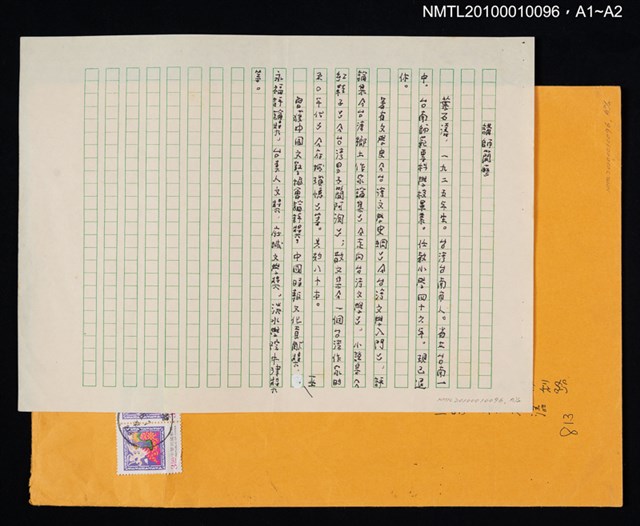 NMTL20100010096，A1~A2
講師簡歷
葉石濤，一九二五年生。台灣台南市人。省立台南一
中，台南師範專科學校畢業。任教小學四十六年，現已退
休。
著有文學史《台灣文學史綱》《台灣文學入門》，評
論集《台灣鄉土作家論集》《走向台灣文學》，小說集《
紅鞋子》《台灣男子簡阿淘》，散文集《一個台灣作家的
五〇年代》《府城瑣憶》等。共約八十本。
曾獲中國文藝協會論評獎，中國時報文化貢獻獎，
永福評論獎，台美人文獎，府城文學獎，淡水學院牛津獎
等。
NMTL20100010096, A2
813